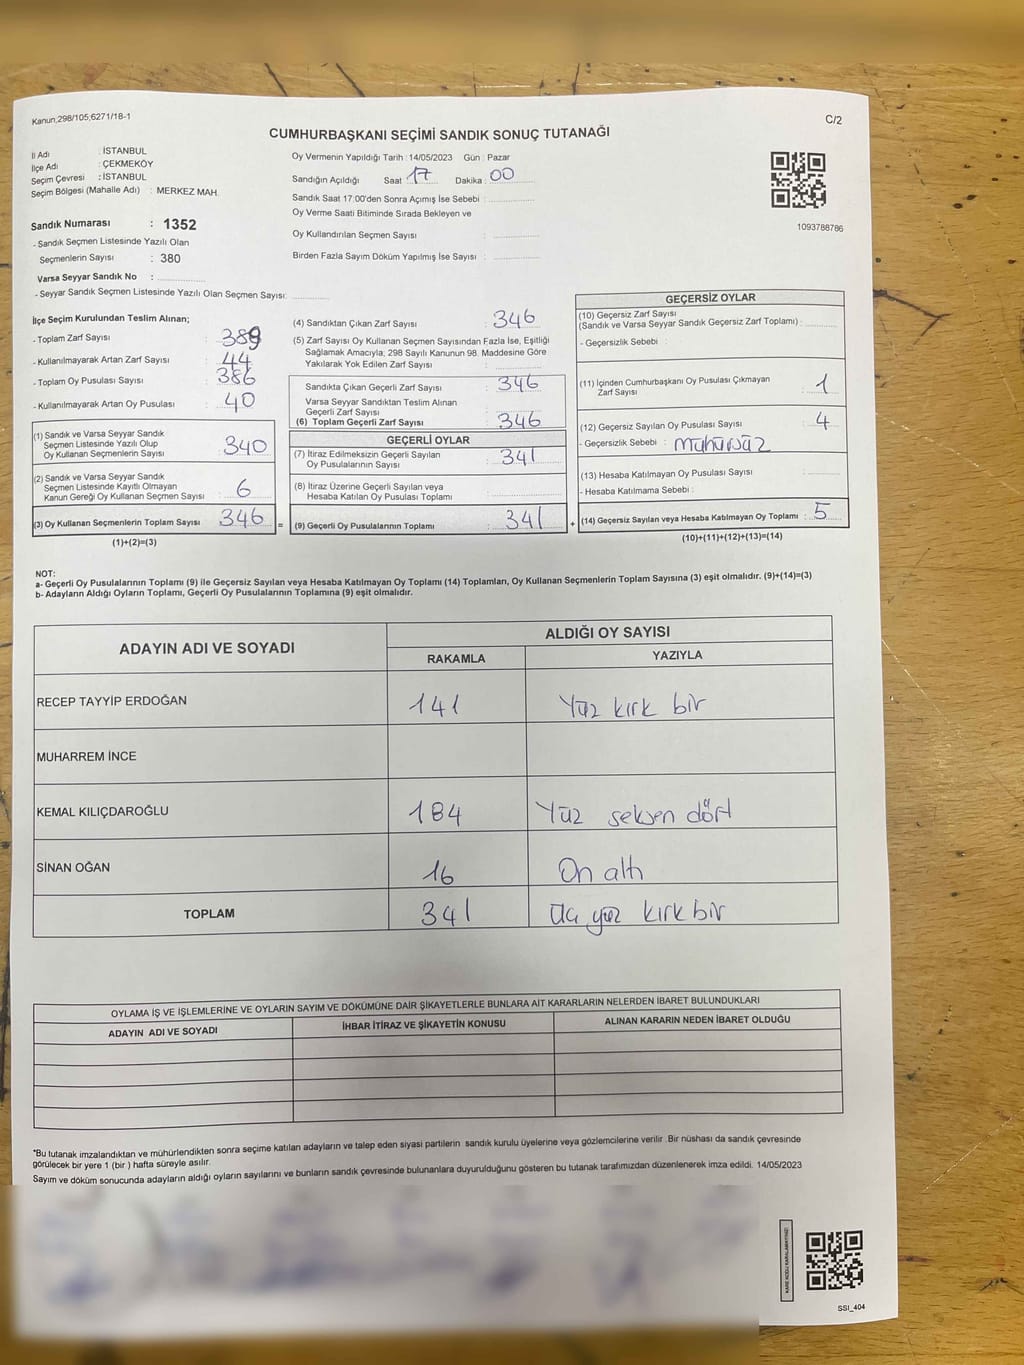 Kanun;298/105;6271/18-1
C/2
CUMHURBAŞKANI SEÇİMİ SANDIK SONUÇ TUTANAĞI
İl Adı : İSTANBUL
İlçe Adı : ÇEKMEKÖY
Seçim Çevresi : İSTANBUL
Seçim Bölgesi (Mahalle Adı) : MERKEZ MAH.
Sandık Numarası : 1352
- Sandık Seçmen Listesinde Yazılı Olan
Seçmenlerin Sayısı : 380
Varsa Seyyar Sandık No :
- Seyyar Sandık Seçmen Listesinde Yazılı Olan Seçmen Sayısı:
Oy Vermenin Yapıldığı Tarih : 14/05/2023 Gün : Pazar
Sandığın Açıldığı Saat 17 Dakika : 00
Sandık Saat 17:00'den Sonra Açımış İse Sebebi :
Oy Verme Saati Bitiminde Sırada Bekleyen ve
Oy Kullandırılan Seçmen Sayısı :
Birden Fazla Sayım Döküm Yapılmış İse Sayısı :
1093788786
İlçe Seçim Kurulundan Teslim Alınan;
- Toplam Zarf Sayısı : 389
- Kullanılmayarak Artan Zarf Sayısı : 44
- Toplam Oy Pusulası Sayısı : 386
- Kullanılmayarak Artan Oy Pusulası : 40
(1) Sandık ve Varsa Seyyar Sandık
Seçmen Listesinde Yazılı Olup
Oy Kullanan Seçmenlerin Sayısı : 340
(2) Sandık ve Varsa Seyyar Sandık
Seçmen Listesinde Kayıtlı Olmayan
Kanun Gereği Oy Kullanan Seçmen Sayısı : 6
(3) Oy Kullanan Seçmenlerin Toplam Sayısı : 346 =
(1)+(2)=(3)
(4) Sandıktan Çıkan Zarf Sayısı : 346
(5) Zarf Sayısı Oy Kullanan Seçmen Sayısından Fazla İse, Eşitliği
Sağlamak Amacıyla; 298 Sayılı Kanunun 98. Maddesine Göre
Yakılarak Yok Edilen Zarf Sayısı :
Sandıkta Çıkan Geçerli Zarf Sayısı : 346
Varsa Seyyar Sandıktan Teslim Alınan
Geçerli Zarf Sayısı :
(6) Toplam Geçerli Zarf Sayısı : 346
GEÇERLİ OYLAR
(7) İtiraz Edilmeksizin Geçerli Sayılan
Oy Pusulalarının Sayısı : 341
(8) İtiraz Üzerine Geçerli Sayılan veya
Hesaba Katılan Oy Pusulası Toplamı :
(9) Geçerli Oy Pusulalarının Toplamı : 341 +
GEÇERSİZ OYLAR
(10) Geçersiz Zarf Sayısı
(Sandık ve Varsa Seyyar Sandık Geçersiz Zarf Toplamı) :
- Geçersizlik Sebebi :
(11) İçinden Cumhurbaşkanı Oy Pusulası Çıkmayan
Zarf Sayısı : 1
(12) Geçersiz Sayılan Oy Pusulası Sayısı : 4
- Geçersizlik Sebebi : mühürsüz
(13) Hesaba Katılmayan Oy Pusulası Sayısı :
- Hesaba Katılmama Sebebi :
(14) Geçersiz Sayılan veya Hesaba Katılmayan Oy Toplamı : 5
(10)+(11)+(12)+(13)=(14)
NOT:
a- Geçerli Oy Pusulalarının Toplamı (9) ile Geçersiz Sayılan veya Hesaba Katılmayan Oy Toplamı (14) Toplamları, Oy Kullanan Seçmenlerin Toplam Sayısına (3) eşit olmalıdır. (9)+(14)=(3)
b- Adayların Aldığı Oyların Toplamı, Geçerli Oy Pusulalarının Toplamına (9) eşit olmalıdır.
ADAYIN ADI VE SOYADI ALDIĞI OY SAYISI
RAKAMLA YAZIYLA
RECEP TAYYİP ERDOĞAN 141 Yüz kırk bir
MUHARREM İNCE
KEMAL KILIÇDAROĞLU 184 Yüz seksen dört
SİNAN OĞAN 16 On altı
TOPLAM 341 Üç yüz kırk bir
OYLAMA İŞ VE İŞLEMLERİNE VE OYLARIN SAYIM VE DÖKÜMÜNE DAİR ŞİKAYETLERLE BUNLARA AİT KARARLARIN NELERDEN İBARET BULUNDUKLARI
ADAYIN ADI VE SOYADI İHBAR İTİRAZ VE ŞİKAYETİN KONUSU ALINAN KARARIN NEDEN İBARET OLDUĞU
*Bu tutanak imzalandıktan ve mühürlendikten sonra seçime katılan adayların ve talep eden siyasi partilerin sandık kurulu üyelerine veya gözlemcilerine verilir .Bir nüshası da sandık çevresinde
görülecek bir yere 1 (bir ) hafta süreyle asılır.
Sayım ve döküm sonucunda adayların aldığı oyların sayılarını ve bunların sandık çevresinde bulunanlara duyurulduğunu gösteren bu tutanak tarafımızdan düzenlenerek imza edildi. 14/05/2023
KARE KODU KARALAMAYINIZ!
SSI_404